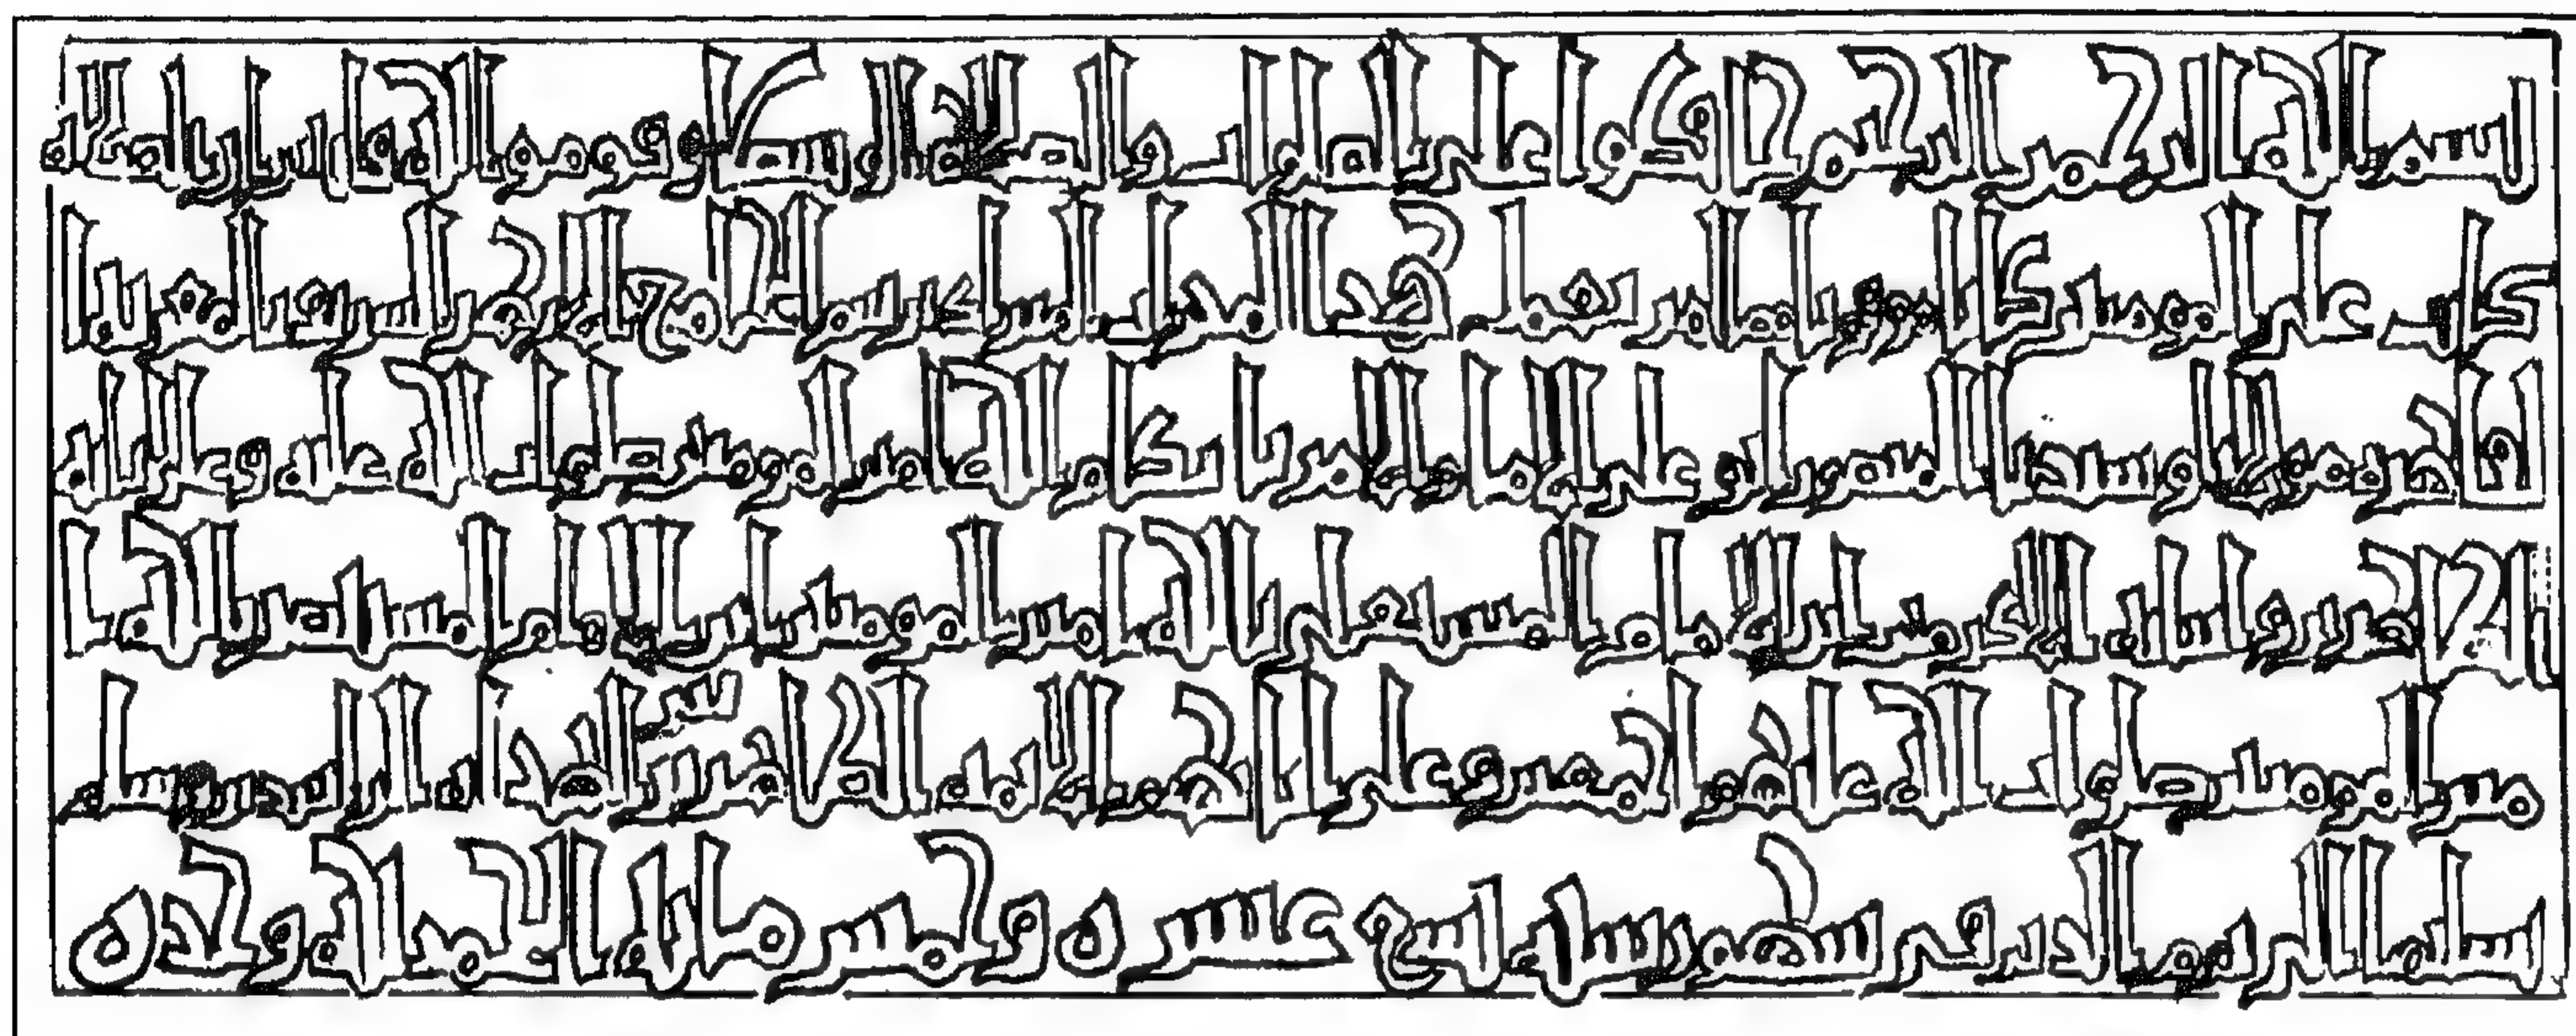 بسم الله الرحمن الرحيم حافظوا على الصلوات والصلوة الوسطى وقوموا لله قانتين ان الصلوة
كانت على المؤمنين كتابا موقوتا مما امر بعمل هذا المحراب المبارك برسم الجامع الازهر الشريف بالمعزية ا
لقاهرة مولانا وسيدنا المنصور ابو علي الامام الامر باحكام الله امير المؤمنين صلوات الله عليه وعلى ابائه
الطاهرين وابنائه الاكرمين ابن الامام المستعلي بالله امير المؤمنين ابن الامام المستنصر بالله ا
مير المؤمنين صلوات الله عليهم اجمعين وعلى ابائهم الائمة الطاهرين بني الهداة الراشدين وسلم
تسليما الى يوم الدين في شهور سنة تسع عشره وخمس مائة الحمد لله وحده